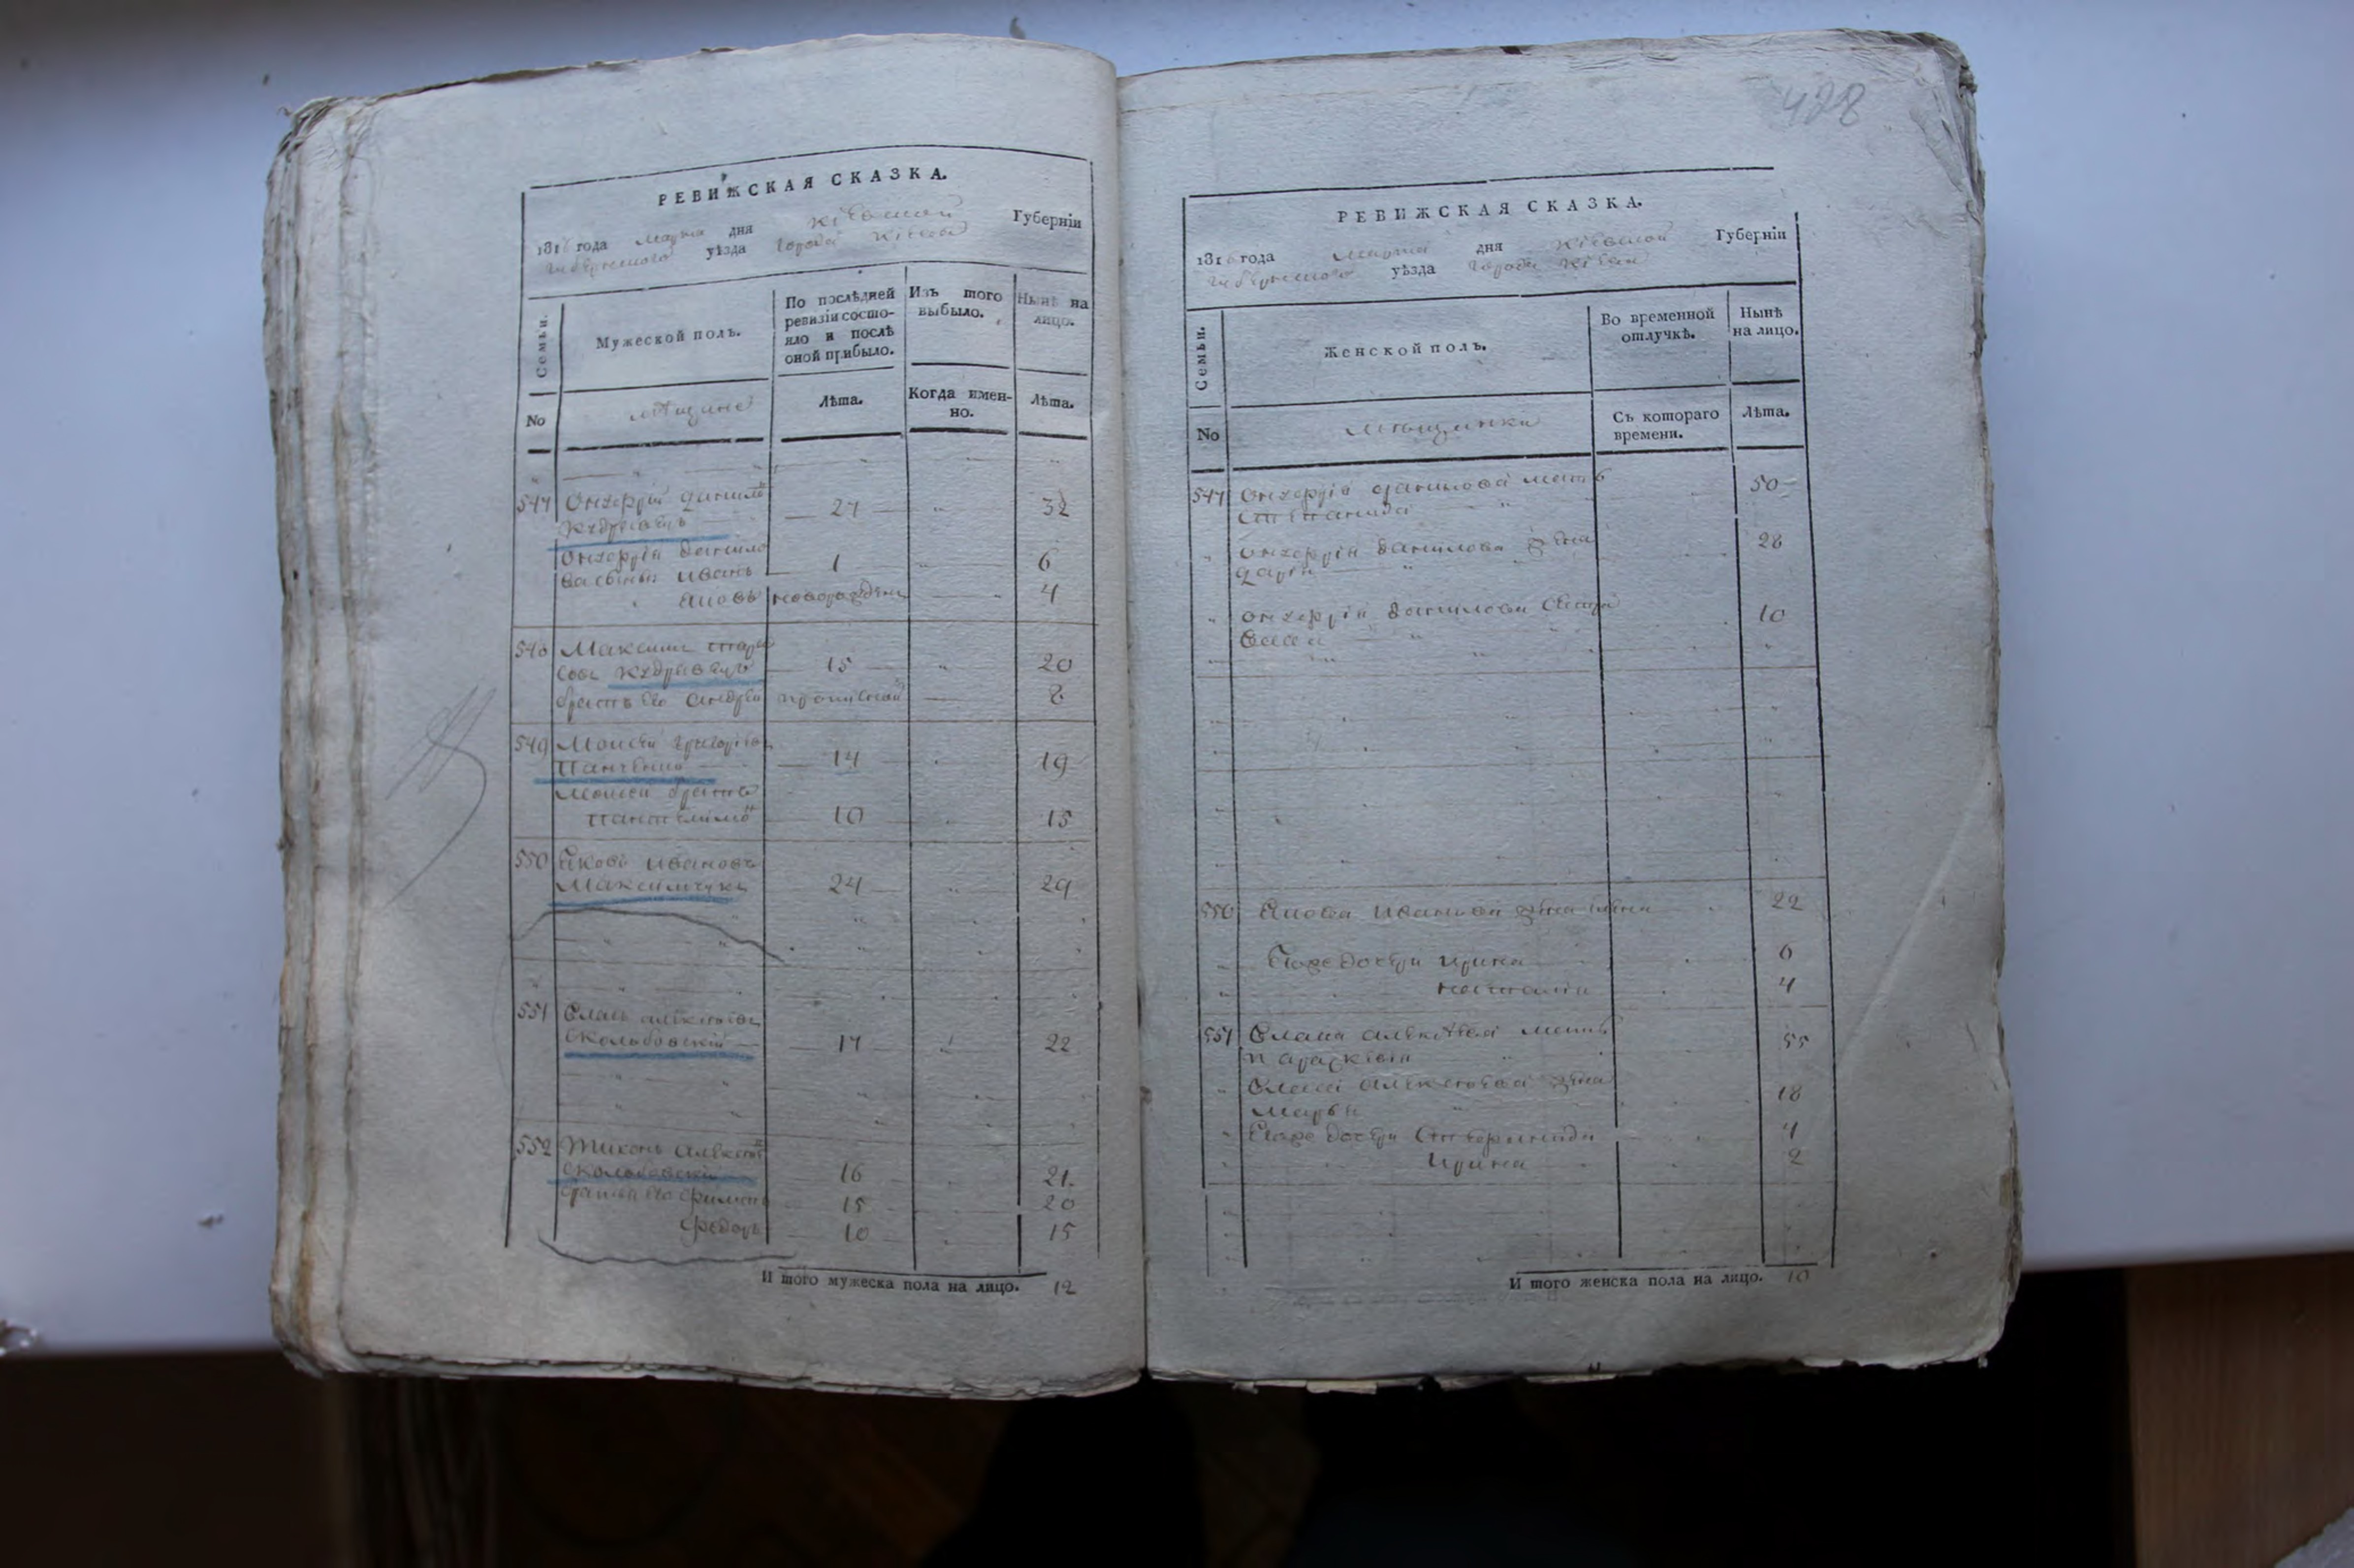 РЕВИЖСКАЯ СКАЗКА.
181 года марта дня Кіевской Губерніи
Губернского уѣзда Города Кіева
Семьи.
Мужеской полъ.
По послѣдней ревизіи состояло и послѣ оной прибыло.
Изъ того выбыло.
Нынѣ на лицо.
No
мѣщане
Лѣта.
Когда именно.
Лѣта.
547 Онуфрій Данило
Кудрявецъ 27 32
Онуфрія Данило
ва сынъя Иванъ 1 6
Яковъ новорожден 4
548 Максимъ Тара
совъ Кудрявецъ 15 20
братъ его Андрей прописной 8
549 Моисей Григорьевъ
Панченко 14 19
Моисея братъ
Пантелимо 10 15
550 Яковъ Ивановъ
Максимчукъ 24 29
551 Власъ Алексѣевъ
Сколобовскій 17 22
552 Тихонъ Алексѣ
Сколобовскій 16 21.
братья его Филипъ 15 20
Федоръ 10 15
И того мужеска пола на лицо. 12
428
РЕВИЖСКАЯ СКАЗКА.
181 года Марта дня Кіевской Губерніи
Губернского уѣзда города Кіева
Семьи.
Женской полъ.
Во временной отлучкѣ.
Нынѣ на лицо.
No
мѣщанки
Съ котораго времени.
Лѣта.
547 Онуфрія Данилова мать
Степанида 50
Онуфрія Данилова жена
Дарья 28
Онуфрія Данилова сестра
10
550 Якова Иванова жена 22
Егоже дочери Ирина 6
Наталія 4
551 Власа Алексѣева мать
Параскевія 55
Власа Алексѣева жена
Марья 18
Егоже дочери 4
Ирина 2
И того женска пола на лицо. 10